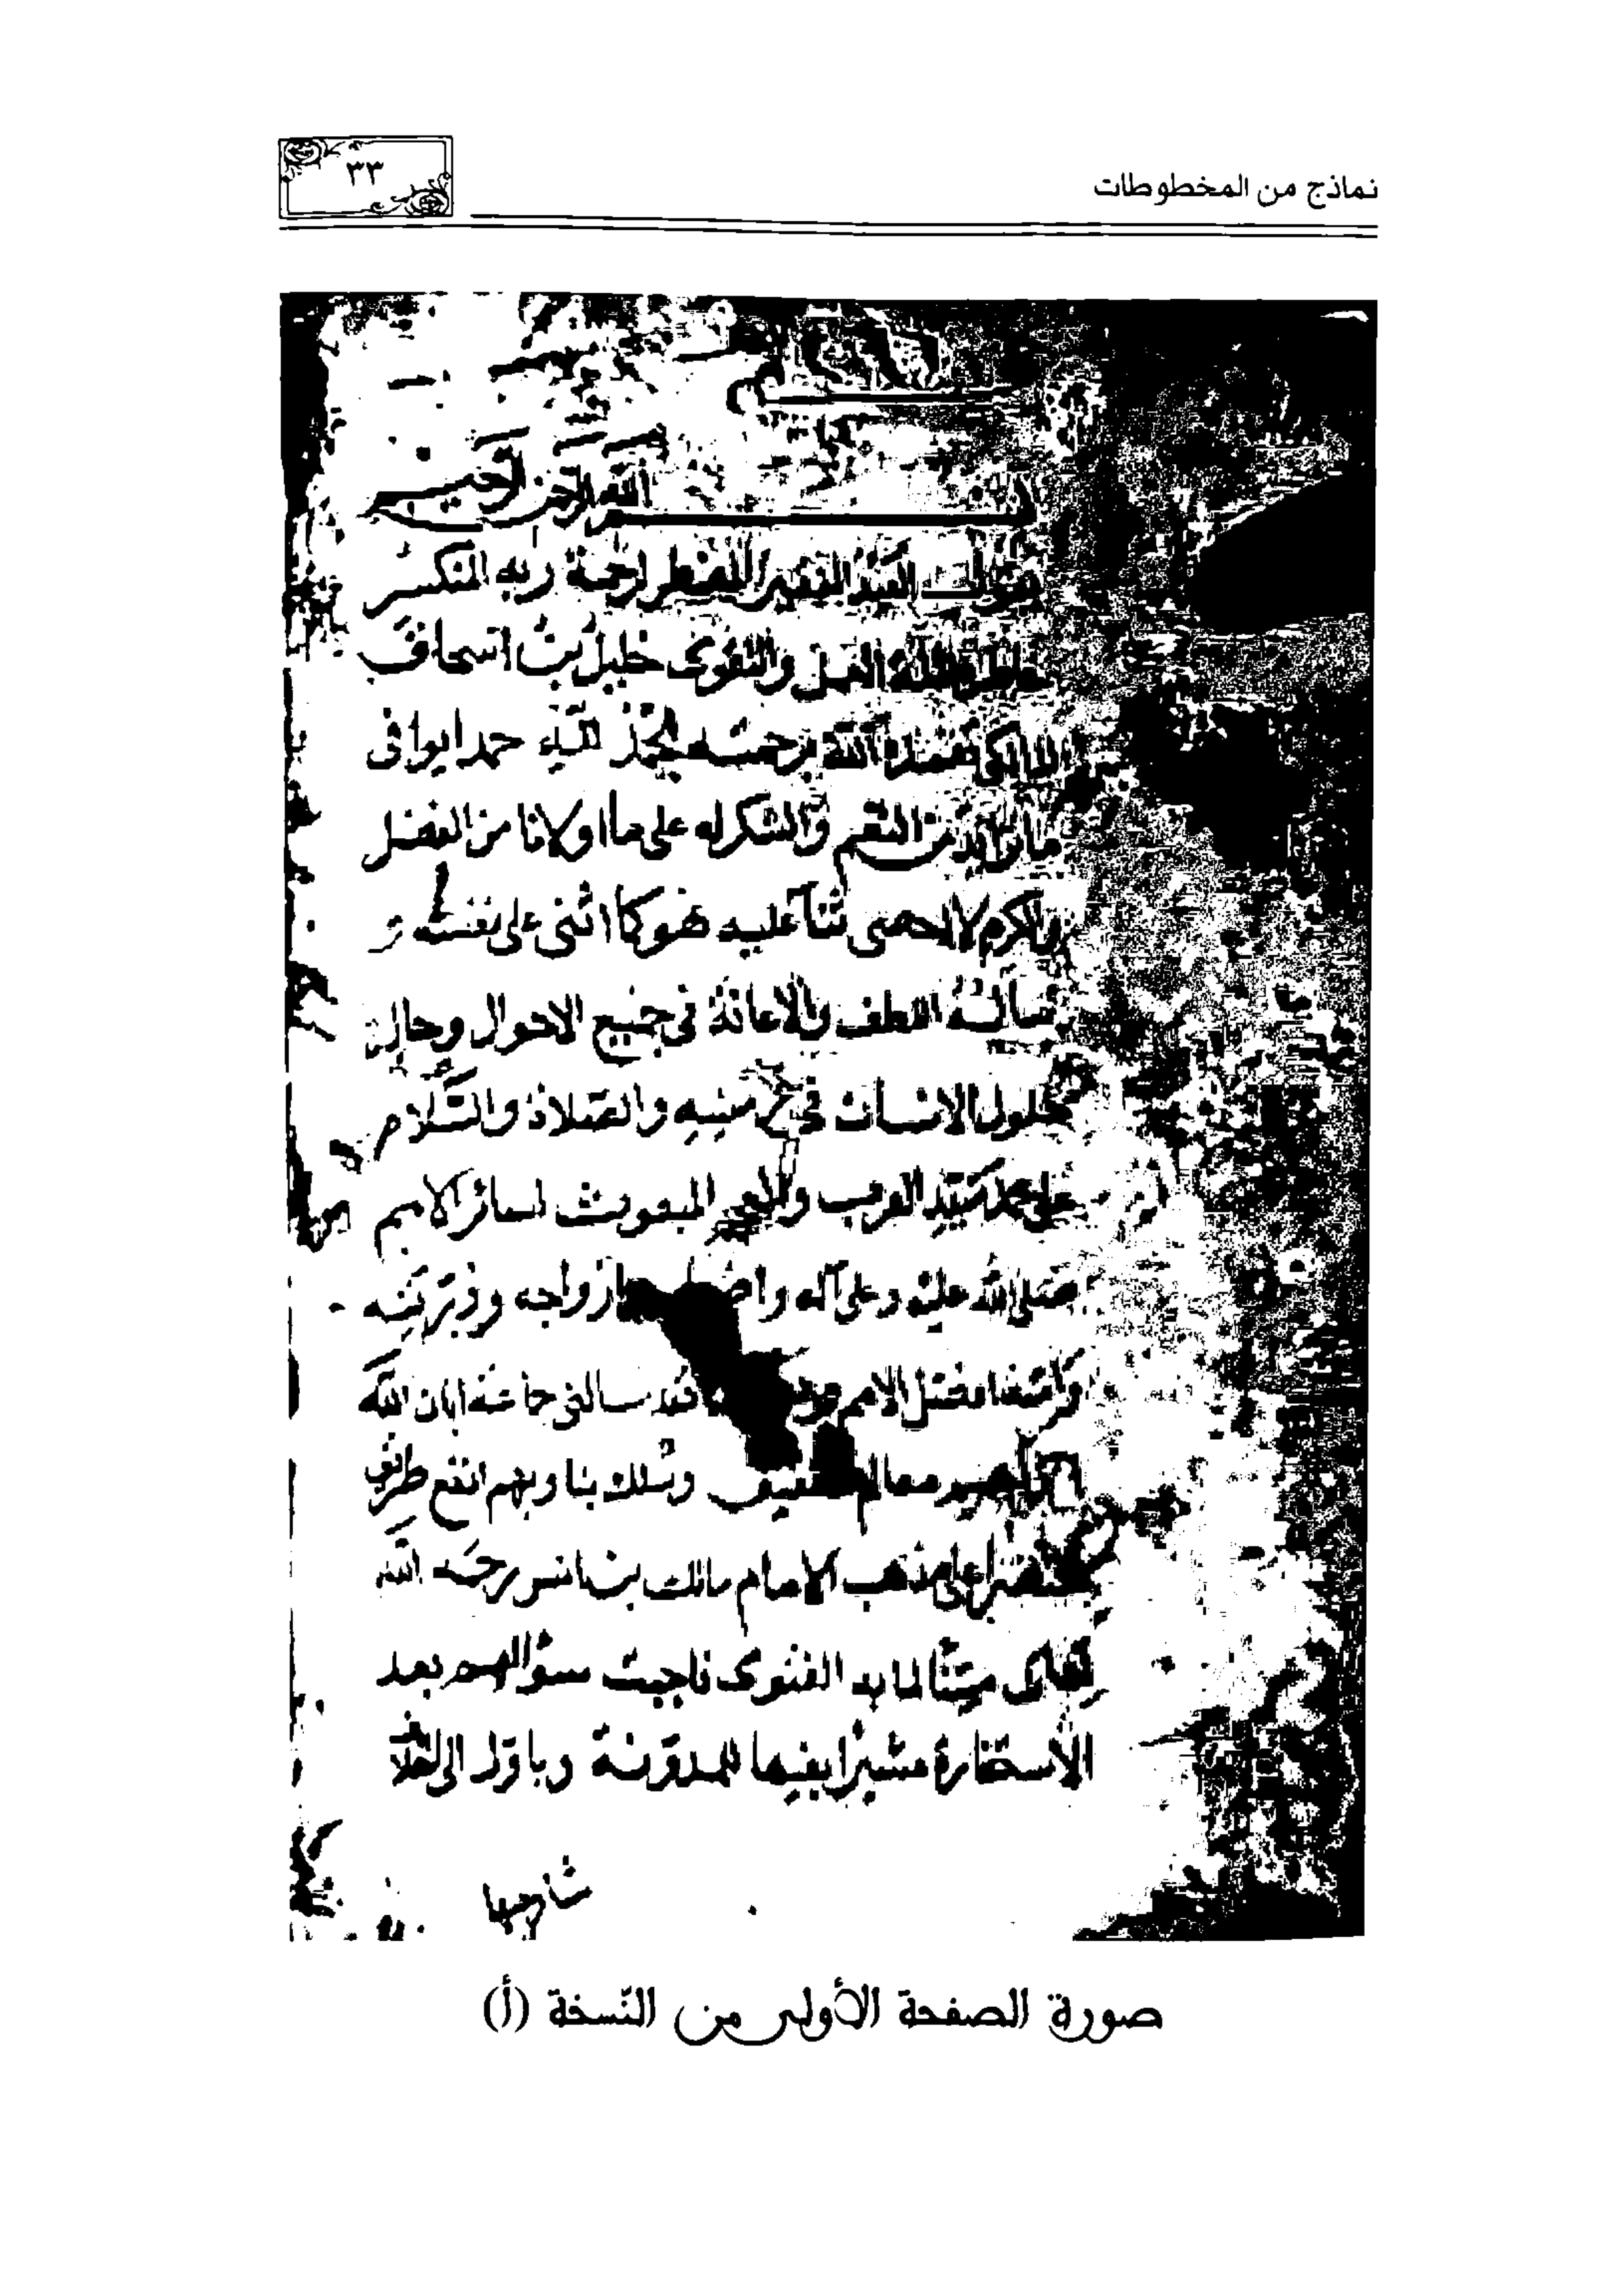 نماذج من المخطوطات
٣٣
الله الرحمن الرحيم
يقول العبد الفقير المضطر لرحمة ربه المنكسر
العمل والتقوى خليل بن اسحاق
المالكي تغمده الله برحمته الحمد لله حمدا يوافى
ما تزايد من النعم والشكر له على ما اولانا من الفضل
والكرم لا احصى ثنآ عليه هو كما اثنى على نفسه و
نسأله اللطف والاعانة فى جميع الاحوال وحال
حلول الانسان فى رمسه والصلاة والسلام
على محمد سيد العرب والعجم المبعوث لسائر الامم
صلى الله عليه وعلى آله وازواجه وذريته
وامته افضل الامم فقد سالنى جماعة ابان الله
معالم وسلك بنا وبهم انفع طريق
مختصرا على مذهب الامام مالك بن انس رحمه الله
تعالى مبينا لما به الفتوى فاجبت سؤالهم بعد
الاستخارة مشيرا بفيها للمدونة وباول الى اختلاف
شارحيها
صورة الصفحة الأولى من النّسخة (أ)